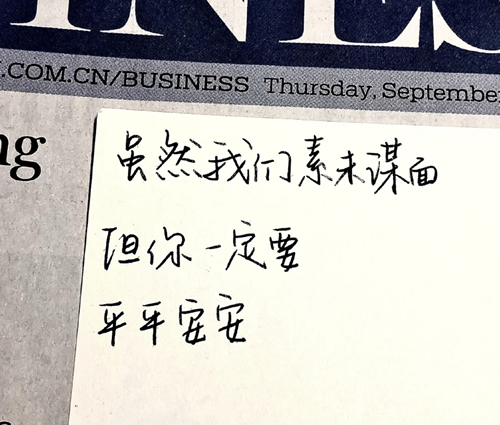 INES
.COM.CN/BUSINESS Thursday, September
ng
虽然我们素未谋面
但你一定要
平平安安